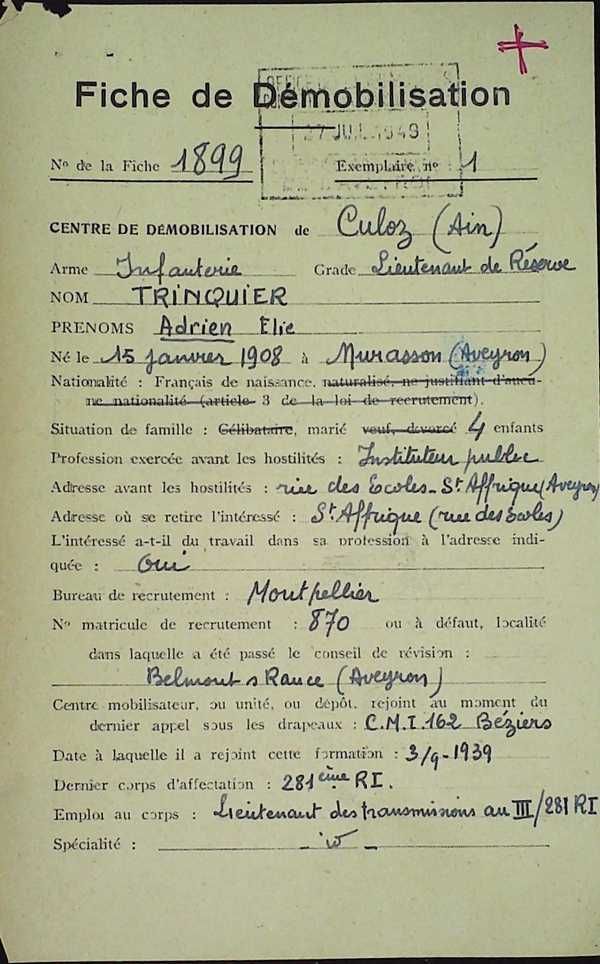 Fiche de Démobilisation
27 JUIL 1949
N° de la Fiche 1899 Exemplaire n° : 1
CENTRE DE DÉMOBILISATION de Culoz (Ain)
Arme Infanterie Grade Lieutenant de Réserve
NOM TRINQUIER
PRENOMS Adrien Elie
Né le 15 janvier 1908 à Murasson (Aveyron)
Nationalité : Français de naissance, naturalisé, ne justifiant d'aucu-
ne nationalité (article 3 de la loi de recrutement).
Situation de famille : Célibataire, marié veuf, divorcé 4 enfants
Profession exercée avant les hostilités : Instituteur public
Adresse avant les hostilités : rue des Ecoles - St Affrique (Aveyron)
Adresse où se retire l'intéressé : St Affrique (rue des Ecoles)
L'intéressé a-t-il du travail dans sa profession à l'adresse indi-
quée : Oui
Bureau de recrutement : Montpellier
N° matricule de recrutement : 870 ou à défaut, localité
dans laquelle a été passé le conseil de révision :
Belmont s Rance (Aveyron)
Centre mobilisateur, ou unité, ou dépôt, rejoint au moment du
dernier appel sous les drapeaux : C.M.I. 162 Béziers
Date à laquelle il a rejoint cette formation : 3/9-1939
Dernier corps d'affectation : 281ème RI.
Emploi au corps : Lieutenant des transmissions au III/281 RI
Spécialité :